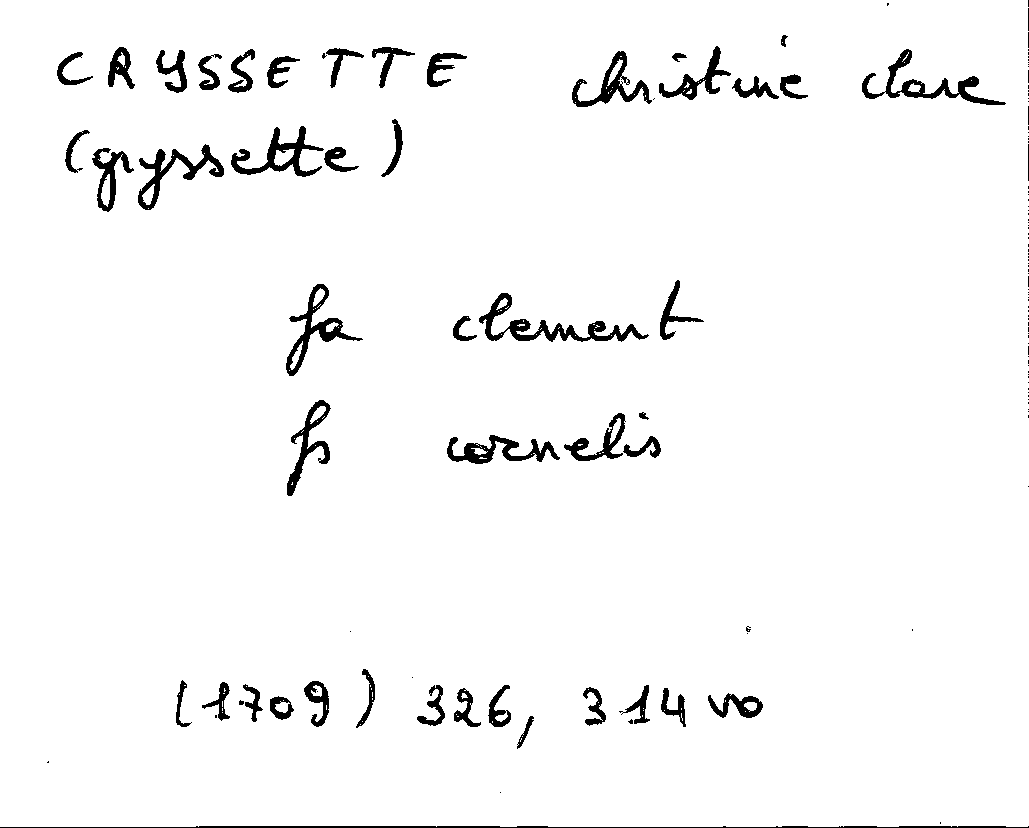 CRYSSETTE christine clare
(gryssette)
fa clement
fs cornelis
(1709) 326, 314 vo